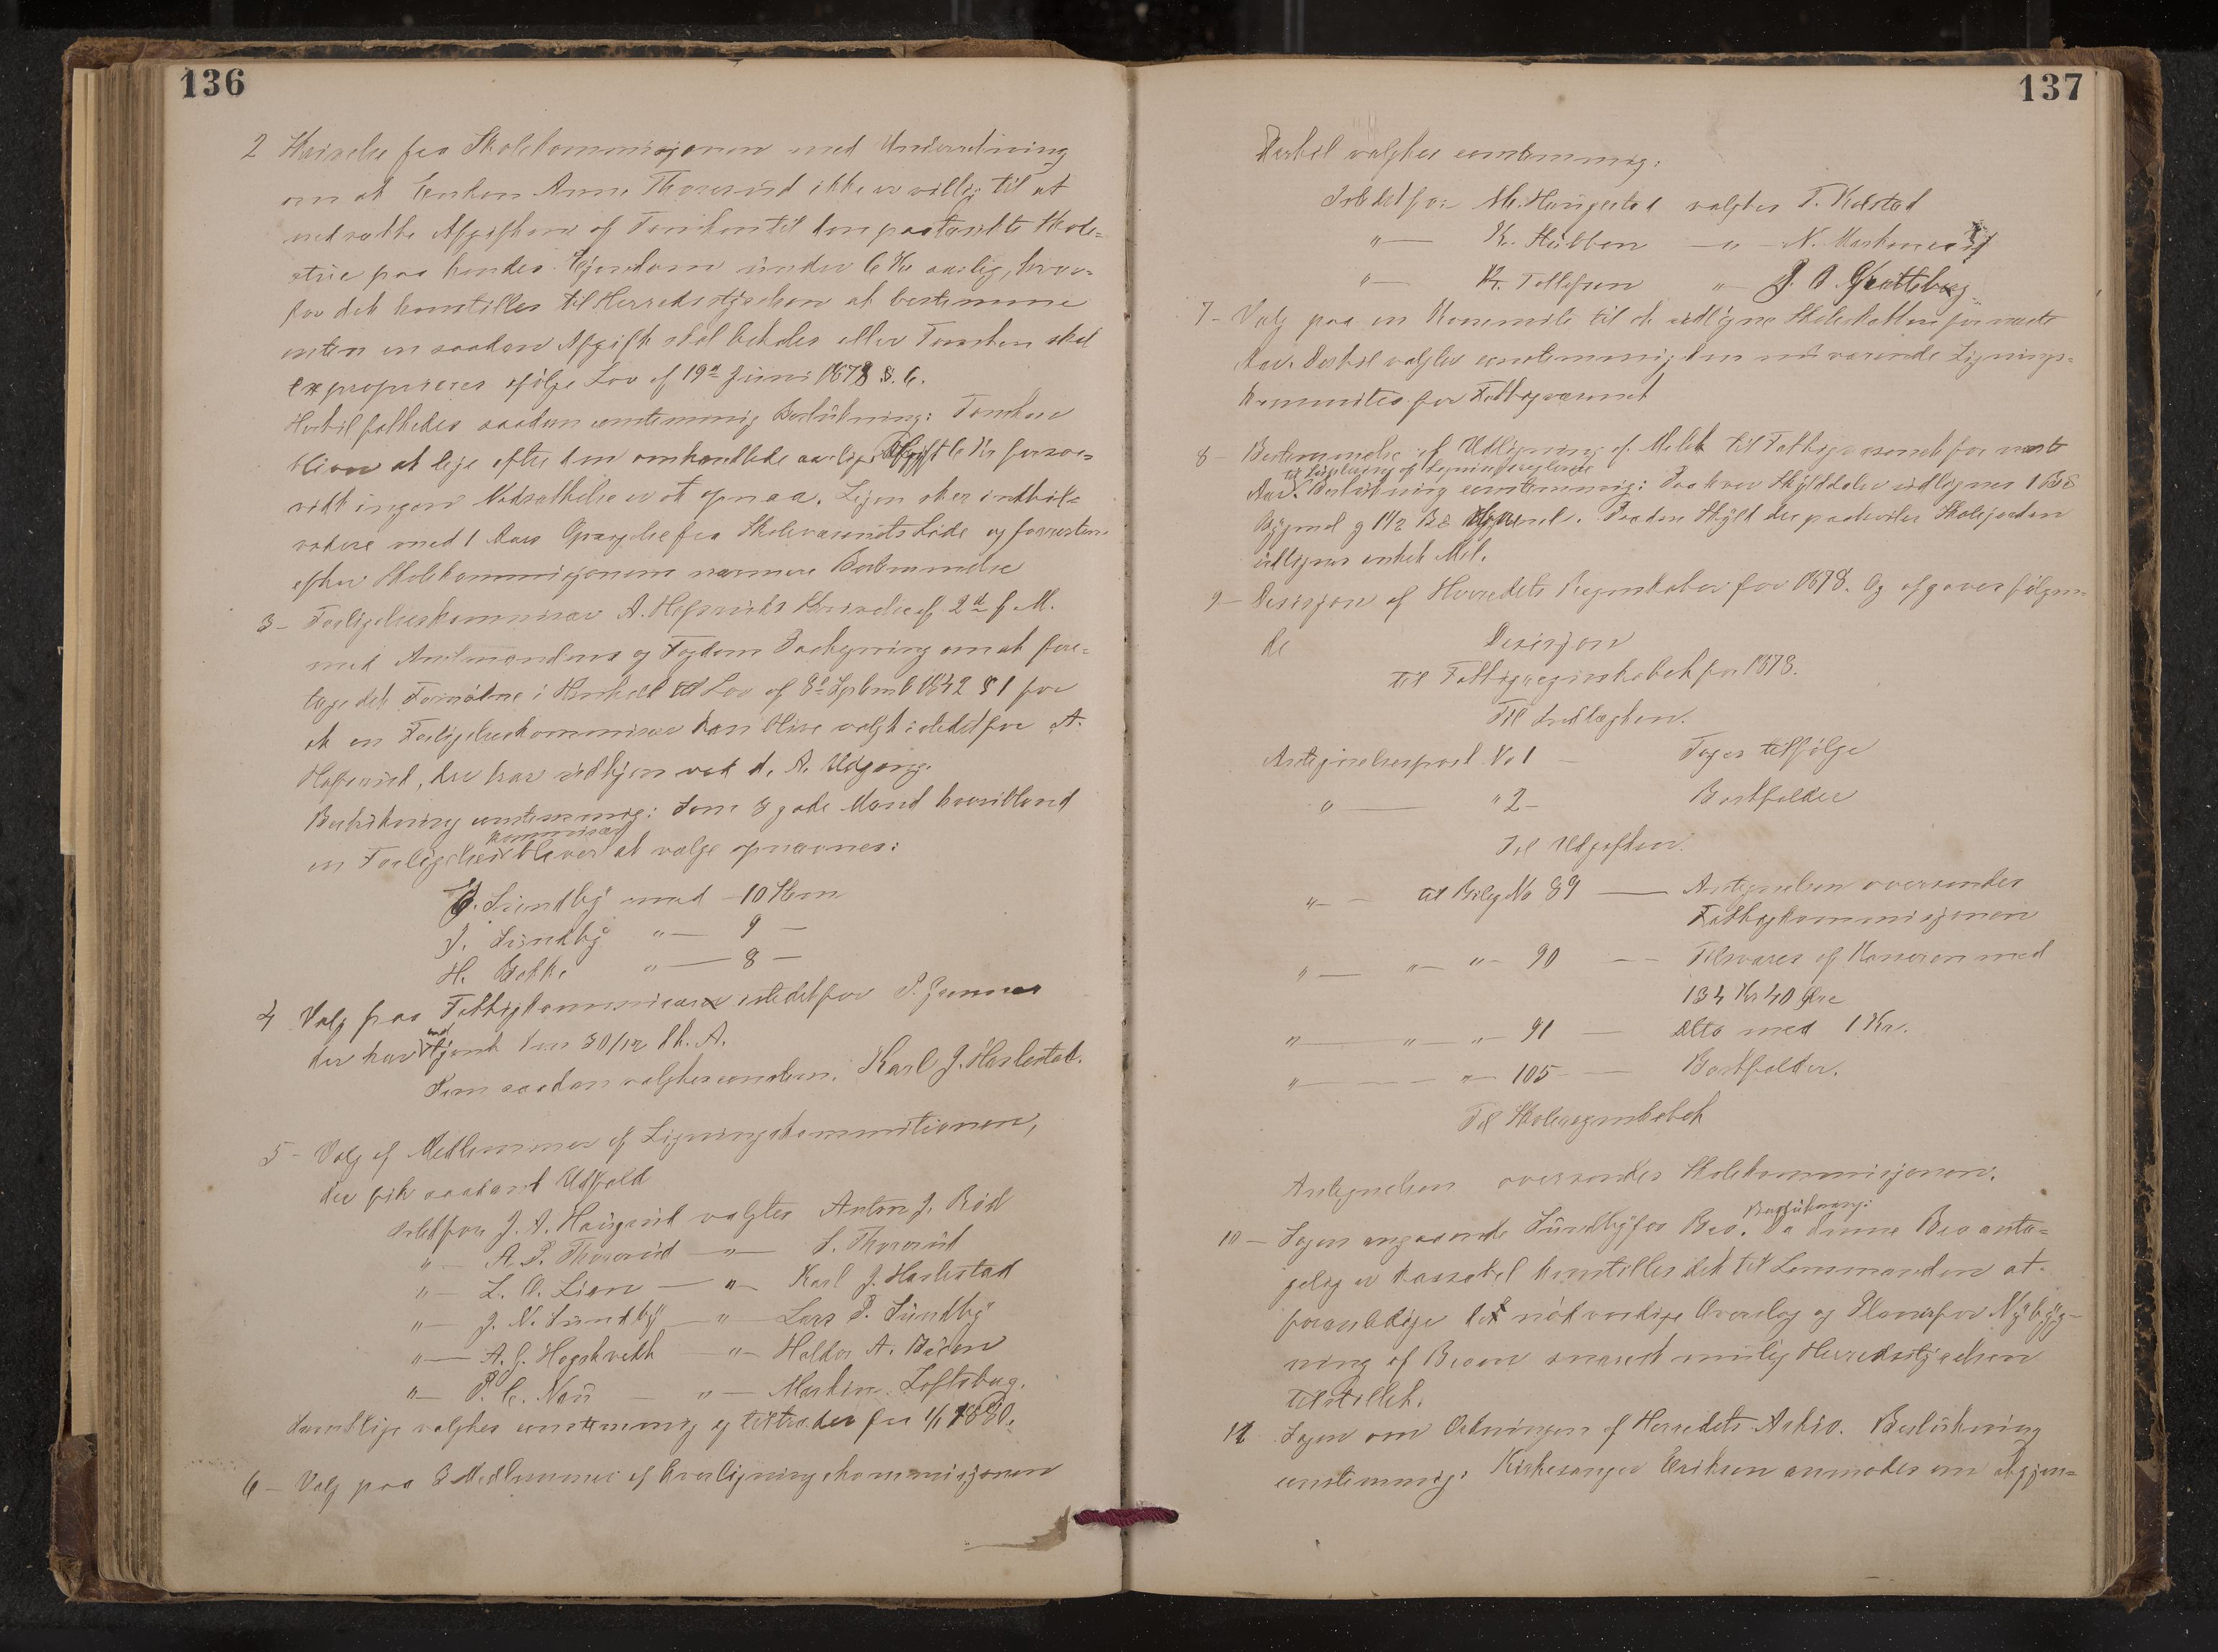 136
2 Skrivelse fra Skolekommisjonen med Underretning
om at Enken Anne Thorerud ikke er villig til at
nedsætte Afgiften af Tomten til den paatænkte Skole-
stue paa hendes Ejendom under 6 Kr aarlig, hvor-
for det henstilles til Herredsstyrelsen at bestemme
enten en saadan Afgift skal betales eller Tomten skal
exproprieres ifølge Lov af 19de Juni 1878 § 6.
Hertil fattedes saadan enstemmig Beslutning: Tomten
bliver at leje efter den omhandlede aarlige Afgift 6 Kr forsaa-
vidt ingen Nedsættelse er at opnaa. Lejen sker indtil-
videre med 1 Aars Opsigelse fra Skolevæsenets Side og forresten
efter Skolekommisjonens nærmere Bestemmelse
3 - Forligelseskommissær A. Hafsruds Skrivelse af 2den f. M.
med Amtmandens og Fogdens Paategning om at fore-
tage det Fornødne i Henhold til Lov af 8de Septemb 1842 § 1 for
at en Forligelseskommissær kan blive valgt istedetfor A.
Hafsrud, der har udtjent ved d. A. Udgang.
Beslutning enstemmig: Som 3 gode Mænd hvoriblandt
kommissær
en Forligelses bliver at vælge opnævnes:
Sundby med - 10 Stem
J. Sundby " — 9 —
H. Bakke " — 8 —
4 Valg paa Fattigkommissær istedetfor P. Grønnes
ud
der har tjent den 30/12 d. A.
Som saadan valgtes enstem. Karl J. Harlestad.
5 - Valg af Medlemmer af Ligningskommitionen,
der fik saadant Udfald
Istedfor J. A. Haugerud valgtes Anton J. Rød
" — A. P. Thorerud — " — S. Thorerud
" — L. O. Lien — " — Karl J. Harlestad
" — J. N. Sundby — " — Lars P. Sundby
" — A. G. Hogstvedt — " — Haldor A. Bøen
" — P. C. Nau — " — Martin Loftsbug.
Samtlige valgtes enstemmig og tiltræder fra 1/1 1880.
6 - Valg paa 3 Medlemmer af Overligningskommisjonen
137
Dertil valgtes enstemmig:
Istedetfor M. Haugestad valgtes T. Kolstad
" — K. Hübben — " — N. Markerud
" — Kr. Tollefsen " — J. O. Grøtteberg
7 - Valg paa en Kommite til at udligne Skoleskatten for næste
Aar. Dertil valgtes enstemmig den nuværende Lignings-
kommites for Fattigvæsenet
8 - Bestemmelse af Udligning af Melet til Fattigvæsenet for næste
til
Aar. Beslutning enstemmig: Paa hver Skylddaler udlignes 1
Bygmel og 1 1/2. Paa den Skyld der paahviler Skolejorden
udlignes enkelt Mel.
9 - Desisjon af Herredets Regnskaber for 1878. Og afgaves følgen-
de Desisjon
til Fattigregnskabet for 1878.
Til Indtægten.
Antegnelsespost No 1 — Tages tilfølge
" — " 2 — Bortfalder
Til Udgiften.
" — til Bilag No 89 — Antegnelsen oversendes
Fattigkommisjonen
" — " — " — 90 — Tilsvares af Kasseren med
134 Kr 40 Øre
" — " — " — 91 — dito med 1 Kr.
" — — " — 105 — Bortfalder.
Til Skoleregnskabet
Antegnelsen oversendes Skolekommisjonen.
Beslutning:
10 - Sagen angaaende Sundbyfos Bro. Da denne Bro anta-
gelig er kassabel henstilles det til Lensmanden at
foranledige det nødvendige Overslag og Planer for Nybyg-
ning af Broen snarest mulig Herredsstyrelsen
tilstillet.
11 Sagen om Ordningen af Herredets Arkiv. Beslutning
enstemmig: Kirkesanger Eriksen anmodes om at gjen-